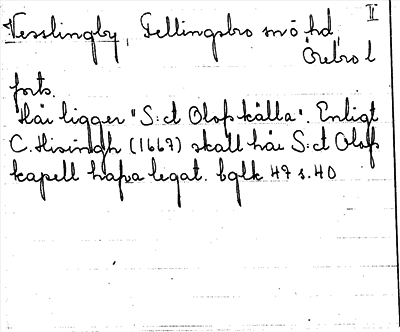 Vesslingby, Fellingsbro snö hd, II
Örebro l
forts.
Här ligger "S:ct Olofs källa". Enligt
C. Hisingh (1667) skall här S:ct Olofs
kapell hafva legat. bglk 47 s. 40